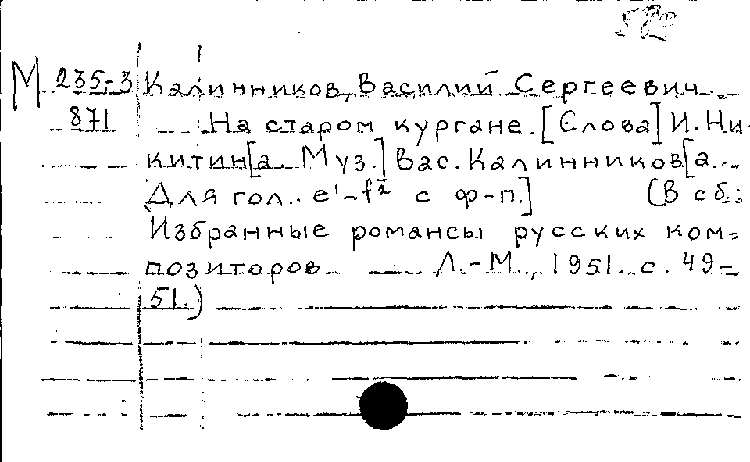 М 235-3 Калинников, Василий Сергеевич.
871 На старом кургане. [Слова] И. Ни-
китин[а. Муз.] Вас. Калинников[а.
Для гол. e¹-f² с ф-п.] (В сб.:
Избранные романсы русских ком-
позиторов Л.-М., 1951. с. 49-
51.)